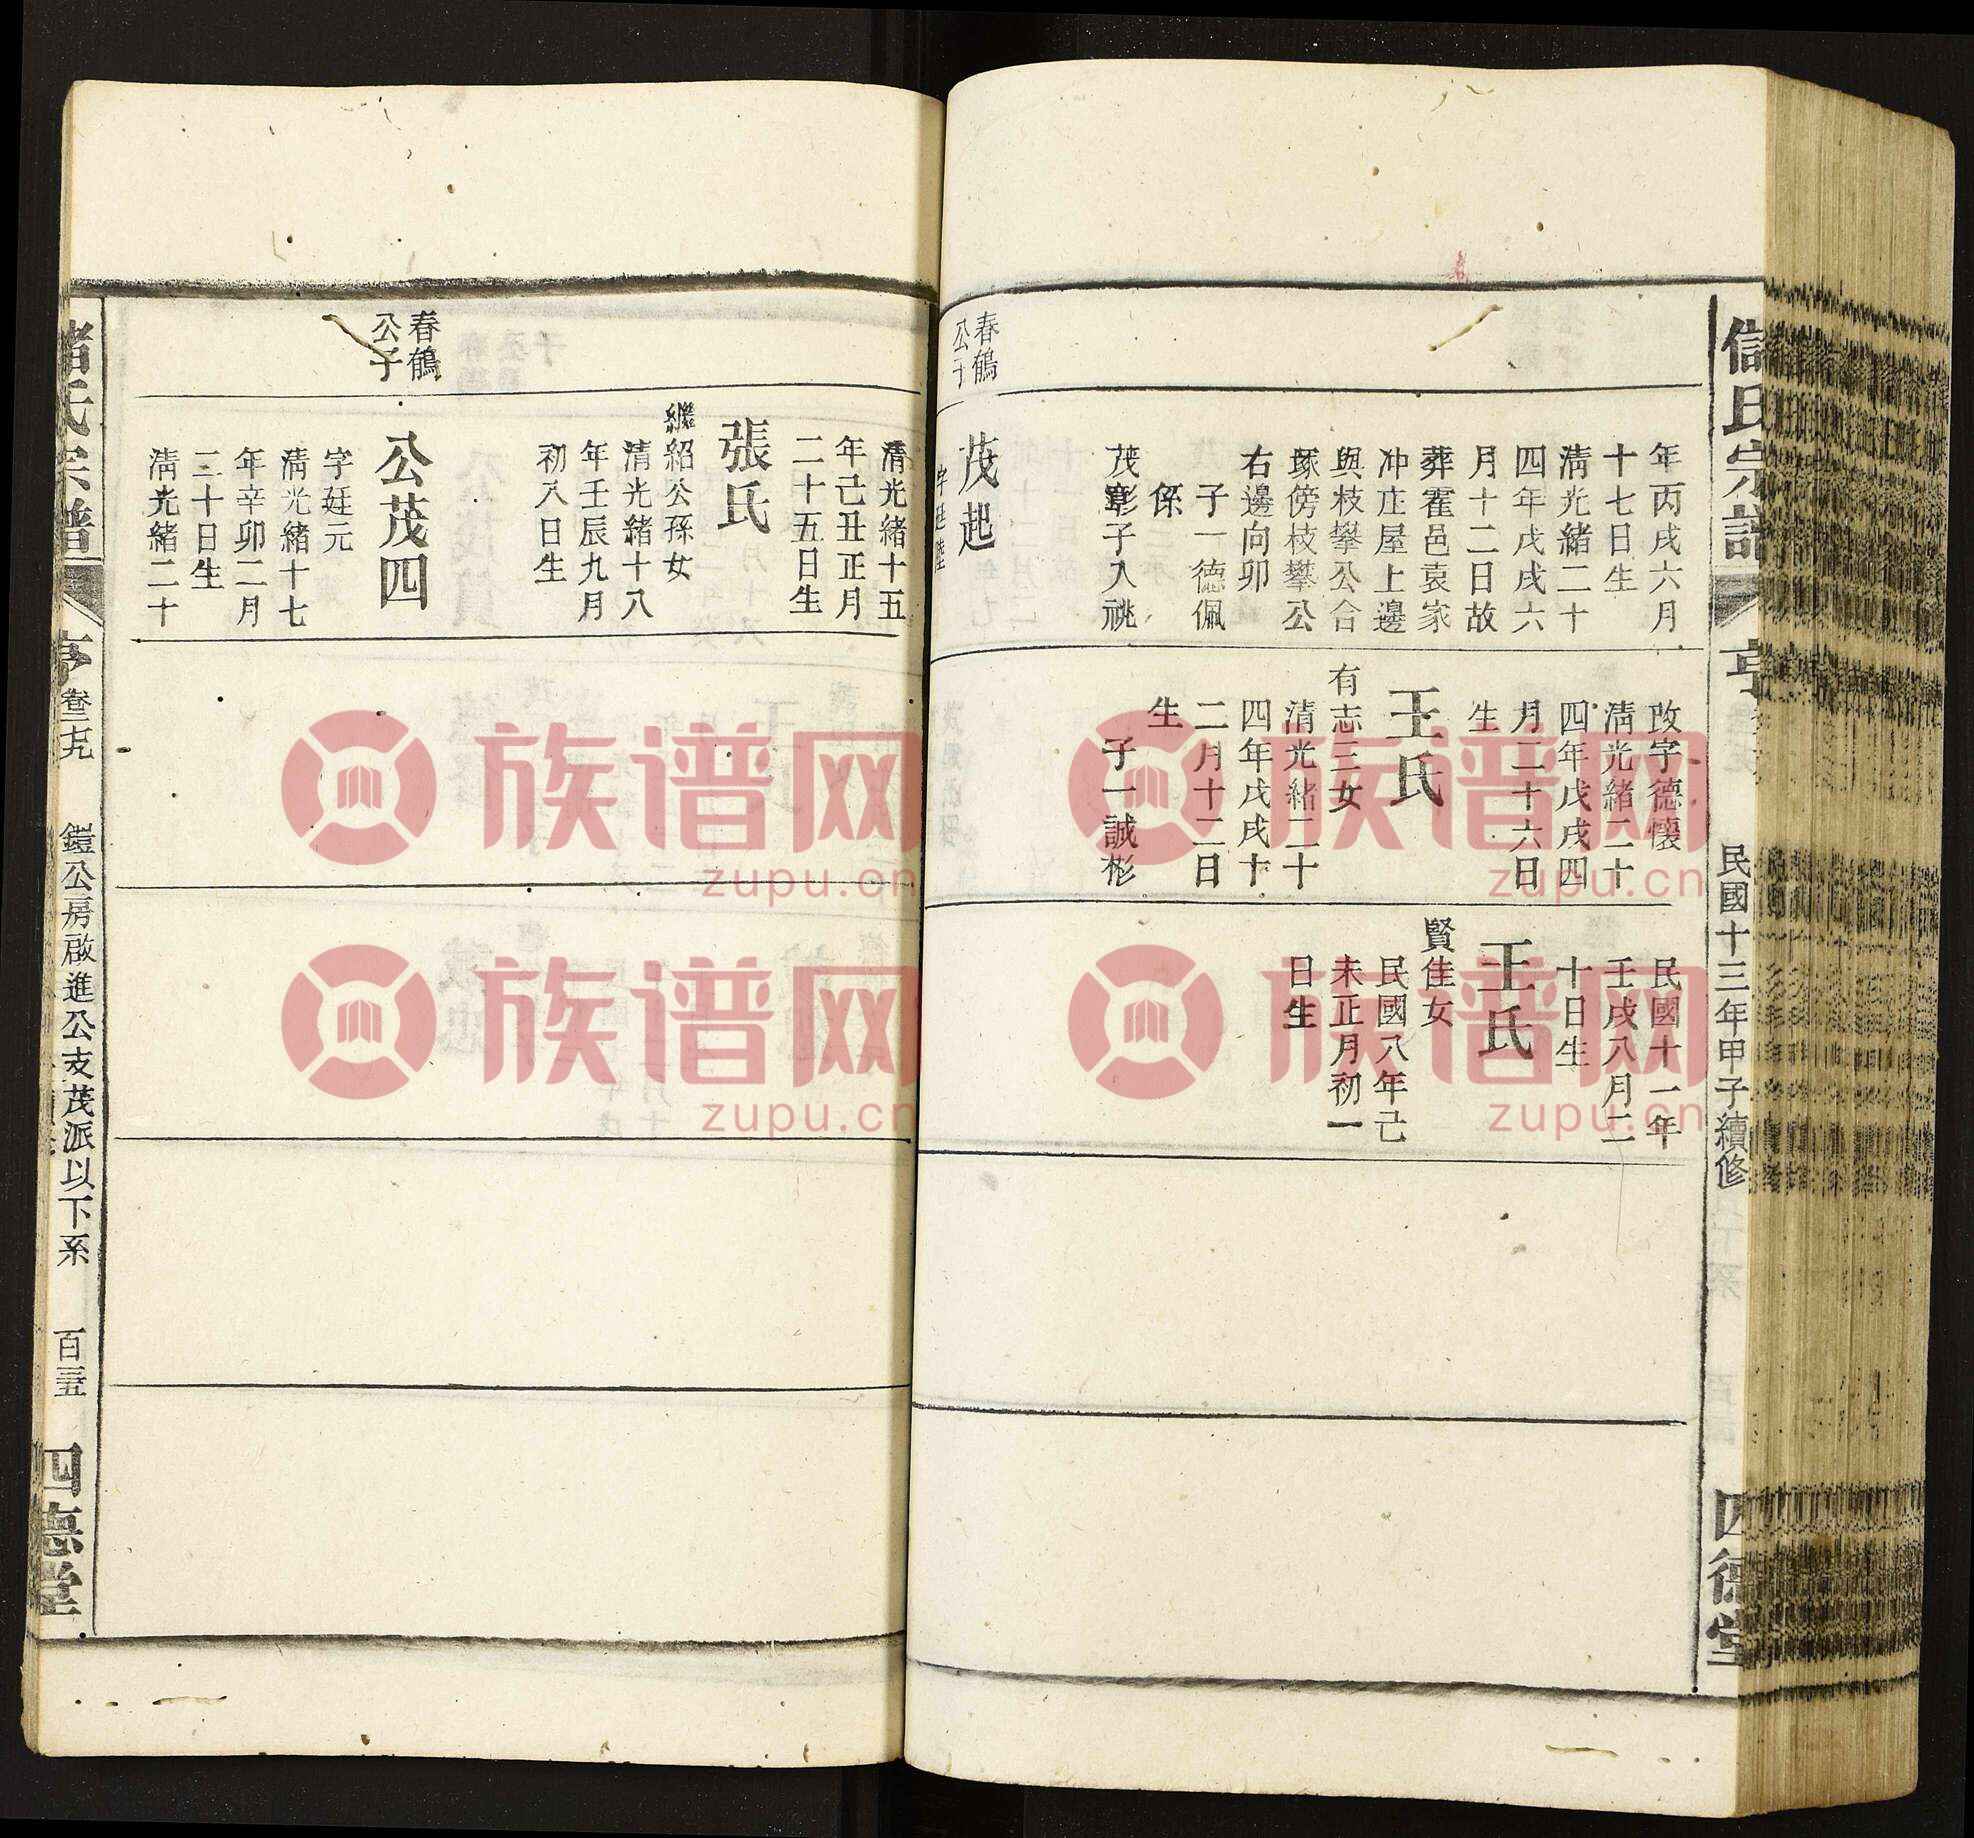 氏宗譜
亨
民國十三年甲子續修
四德堂
年丙戌六月
十七日生
淸光緒二十
四年戊戌六
月十二日故
葬霍邑袁家
冲庄屋上邊
與枝攀公合
塚傍枝攀公
右邊向卯
子一德佩
係
茂彰子入祧
春鶴
公子
茂起
改字德懷
淸光緒二十
四年戊戌四
月二十六日
生
王氏
有志三女
清光緒二十
四年戊戌十
二月十二日
生
子一誠彬
民國十一年
壬戌八月二
十日生
王氏
賢佳女
民國八年己
未正月初一
日生
清光緒十五
年己丑正月
二十五日生
張氏
繼紹公孫女
清光緒十八
年壬辰九月
初八日生
春鶴
公子
公茂四
字廷元
淸光緒十七
年辛卯二月
二十日生
淸光緒二十
氏宗譜
亨
鎧公房啟進公支茂派以下系
四德堂
族谱网
zupu.cn
族谱网
zupu.cn
族谱网
zupu.cn
族谱网
zupu.cn